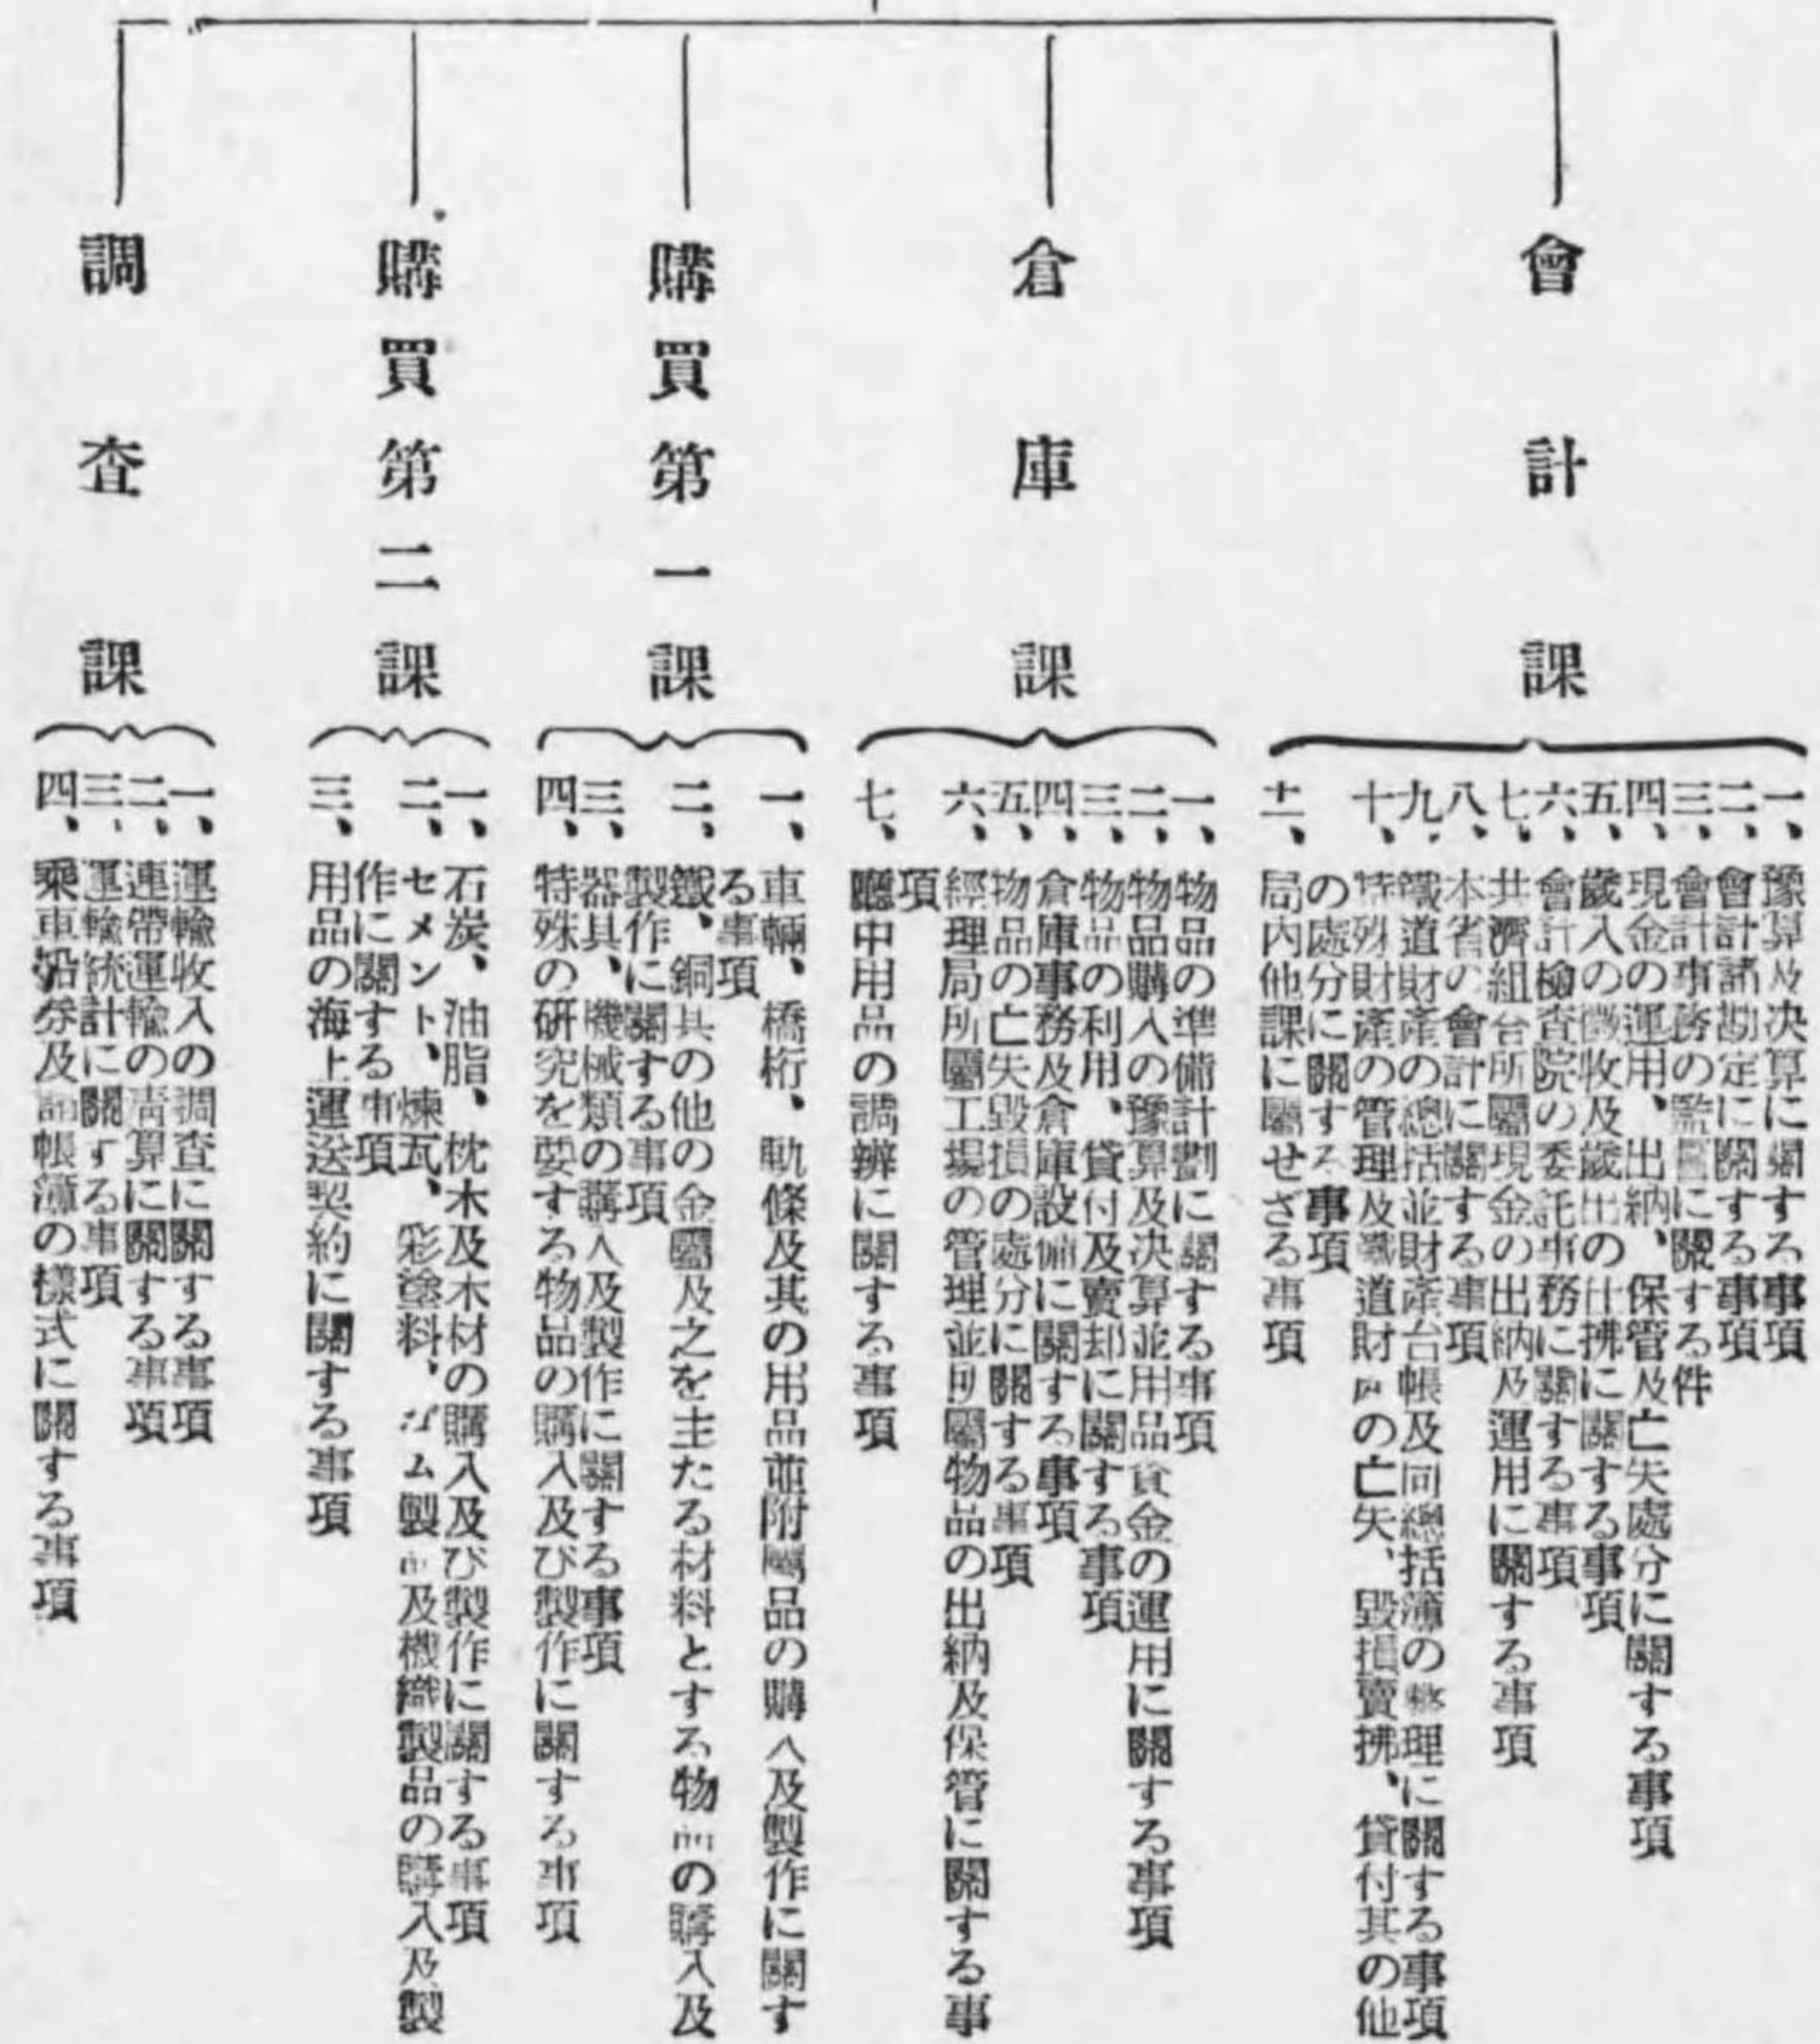 會計課
一、豫算及决算に關する事項
二、會計諸勘定に關する事項
三、會計事務の監督に關する件
四、現金の運用、出納、保管及亡失處分に關する事項
五、歲入の徵收及歲出の仕拂に關する事項
六、會計檢査院の委託事務に關する事項
七、共濟組合所屬現金の出納及運用に關する事項
八、本省の會計に關する事項
九、鐵道財產の總括並財產台帳及同總括簿の整理に關する事項
十、特殊財產の管理及鐵道財產の亡失、毀損賣拂、貸付其の他
の處分に關する事項
十一、局内他課に屬せざる事項
倉庫課
一、物品の準備計劃に關する事項
二、物品購入の豫算及决算並用品資金の運用に關する事項
三、物品の利用、貸付及賣却に關する事項
四、倉庫事務及倉庫設備に關する事項
五、物品の亡失毀損の處分に關する事項
六、經理局所屬工場の管理並所屬物品の出納及保管に關する事
項
七、廳中用品の調辨に關する事項
購買第一課
一、車輛、橋桁、軌條及其の用品並附屬品の購入及製作に關す
る事項
二、鐵、銅其の他の金屬及之を主たる材料とする物品の購入及
製作に關する事項
三、器具、機械類の購入及製作に關する事項
四、特殊の研究を要する物品の購入及び製作に關する事項
購買第二課
一、石炭、油脂、枕木及木材の購入及び製作に關する事項
二、セメント、煉瓦、彩塗料、ゴム製品及機織製品の購入及製
作に關する事項
三、用品の海上運送契約に關する事項
調査課
一、運輸收入の調査に關する事項
二、連帶運輸の淸算に關する事項
三、運輸統計に關する事項
四、乘車船券及諸帳簿の樣式に關する事項